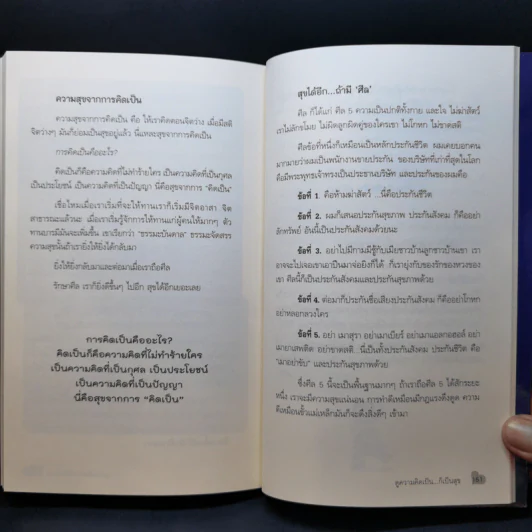 ความสุขจากการคิดเป็น
ความสุขจากการคิดเป็น คือ ให้เราคิดตอนจิตว่าง เมื่อมีสติ
จิตว่างๆ มันก็ย่อมเป็นสุขอยู่แล้ว นี่แหละความสุขจากการคิดเป็น
การคิดเป็นคืออะไร?
คิดเป็นก็คือความคิดที่ไม่ทำร้ายใคร เป็นความคิดที่เป็นกุศล
เป็นประโยชน์ เป็นความคิดที่เป็นปัญญา นี่คือสุขจากการ "คิดเป็น"
เชื่อไหมเมื่อเราเริ่มที่จะให้ทานเราก็เริ่มมีจิตอาสา จิต
สาธารณะแล้วนะ เมื่อเราเริ่มรู้จักการให้ทานแก่ผู้คนให้มากๆ ตัว
ทานบารมีมันจะเพิ่มขึ้น เขาเรียกว่า "ธรรมะบันดาล" ธรรมะจัดสรร
ความสุขนั้นถ้าเรายิ่งให้ยิ่งได้กลับมา
ยิ่งให้ยิ่งกลับมาและต่อมาเมื่อเราถือศีล
รักษาศีล เราก็ยิ่งดีขึ้นๆ ไปอีก สุขได้อีกเยอะเลย
การคิดเป็นคืออะไร?
คิดเป็นก็คือความคิดที่ไม่ทำร้ายใคร
เป็นความคิดที่เป็นกุศล เป็นประโยชน์
เป็นความคิดที่เป็นปัญญา
นี่คือสุขจากการ "คิดเป็น"
สุขได้อีก...ถ้ามี 'ศีล'
ศีล ก็ได้แก่ ศีล 5 ความเป็นปกติทั้งกาย และใจ ไม่ฆ่าสัตว์
เราไม่ลักขโมย ไม่ผิดลูกผิดคู่ของใครเขา ไม่โกหก ไม่ขาดสติ
ศีลข้อที่หนึ่งก็เหมือนเป็นหลักประกันชีวิต ผมเคยบอกคน
มากมายว่าผมเป็นพนักงานขายประกัน ของบริษัทที่เก่าที่สุดในโลก
คือมีพระพุทธเจ้าทรงเป็นประธานบริษัท และประกันของผมคือ
ข้อที่ 1. คือห้ามฆ่าสัตว์ ...นี่คือประกันชีวิต
ข้อที่ 2. ผมก็เสนอประกันสุขภาพ ประกันสังคม ก็คืออย่า
ลักทรัพย์ อันนี้เป็นประกันสังคมด้วยนะ
ข้อที่ 3. อย่าไปมีกามมีชู้กับเมียชาวบ้านลูกชาวบ้านเขา เรา
อาจจะไปเจอเขาเอาปืนมาจ่อยิงก็ได้ ก็เรายุ่งกับของรักของหวงของ
เขา ศีลนี้ก็เป็นประกันสังคมและประกันสุขภาพด้วย
ข้อที่ 4. ต่อมาก็ประกันชื่อเสียงประกันสังคม ก็คืออย่าโกหก
อย่าหลอกลวงใคร
ข้อที่ 5. อย่า เมาสุรา อย่าเมาเบียร์ อย่าเมาแอลกอฮอล์ อย่า
เมายาเสพติด อย่าขาดสติ...นี่เป็นทั้งประกันสังคม ประกันชีวิต คือ
"เมาอย่าขับ" และประกันสุขภาพด้วย
ซึ่งศีล 5 นี้จะเป็นพื้นฐานมากๆ ถ้าเราถือศีล 5 ได้สักระยะ
หนึ่ง เราจะมีความสุขแน่นอน การทำดีเหมือนมีกฎแรงดึงดูด ความ
ดีเหมือนขั้วแม่เหล็กมันก็จะดึงสิ่งดีๆ เข้ามา
ดูความคิดเป็น...ก็เป็นสุข